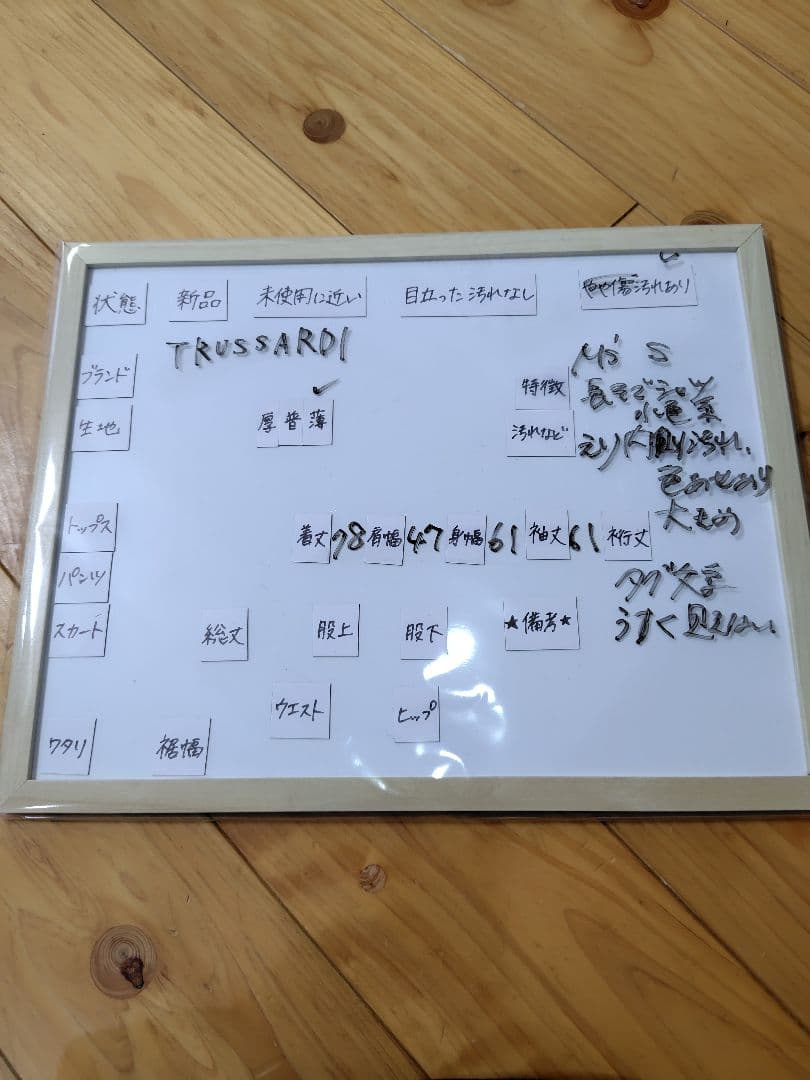 状態 新品 未使用に近い 目立った汚れなし やや傷汚れあり
ブランド TRUSSARDI
生地 厚 普 薄 ✓
特徴 M's S
長そでシャツ
汚れなど
えり内側り汚れ、
色あせあり
大きめ
トップス 着丈 78 肩幅 47 身幅 61 袖丈 61 裄丈
パンツ
スカート 総丈 股上 股下 ★備考★
タグ文字
うすく見えない
ウエスト ヒップ
ワタリ 裾幅